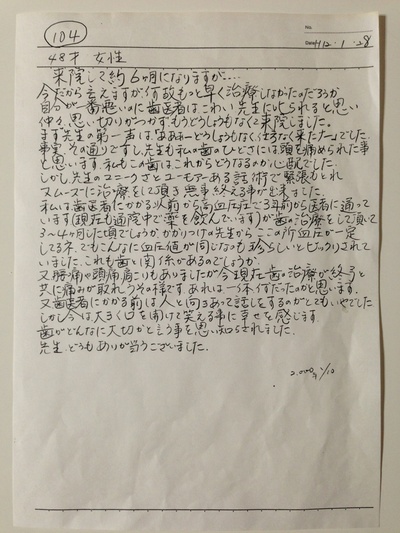 104
No.
Date H12・1・28
48才 女性
来院して約6ヶ月になりますが…
今だから言えますが何故もっと早く治療しなかったのだろうか
自分が一番悪いのに歯医者はこわい先生に叱られると思い
仲々思い切りがつかずもうどうしようもなくて来院しました。
まず先生の第一声は、「あああーどうしようもなくなる来たナー」でした。
事実その通りですし先生も私の歯のひどさには頭を痛められた事
と思います。私もこの歯はこれからどうなるのか心配でした。
しかし先生のユニークさとユーモアーある話術で緊張もとれ
スムーズに治療をして頂き無事終える事が出来ました。
私は歯医者にかかる以前から高血圧症で3年前から医者に通って
います(現在も通院中で薬を飲んでいます)が歯の治療をして頂いて
3〜4ヶ月した頃でしょうかかかりつけの先生からここの所血圧が一定
してるネでもこんなに血圧値が同じなのも珍らしいとビックリされて
いました。これも歯と関係があるのでしょうか。
又腰痛や頭痛肩こりもありましたが今現在歯の治療が終ると
共に痛みが取れうその様です。あれは一体何だったのかと思います。
又歯医者にかかる前は人と向きあって話しをするのがとてもいやでした
しかし今は大きく口を開けて笑える事に幸せを感じます。
歯がどんなに大切かと言う事を思い知らされました。
先生どうもありが当うございました。